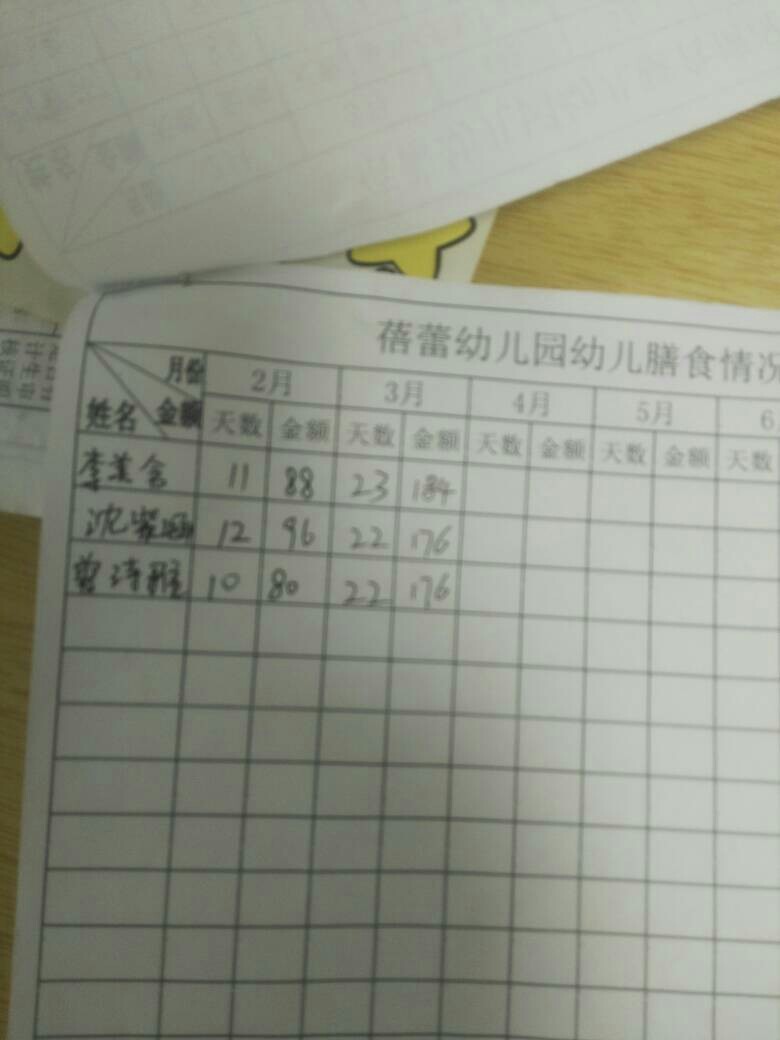 蓓蕾幼儿园幼儿膳食情况
月份 2月 3月 4月 5月 6
姓名 金额 天数 金额 天数 金额 天数 金额 天数 金额 天数
李 11 88 23 184
沈紫涵 12 96 22 176
曾诗雅 10 80 22 176